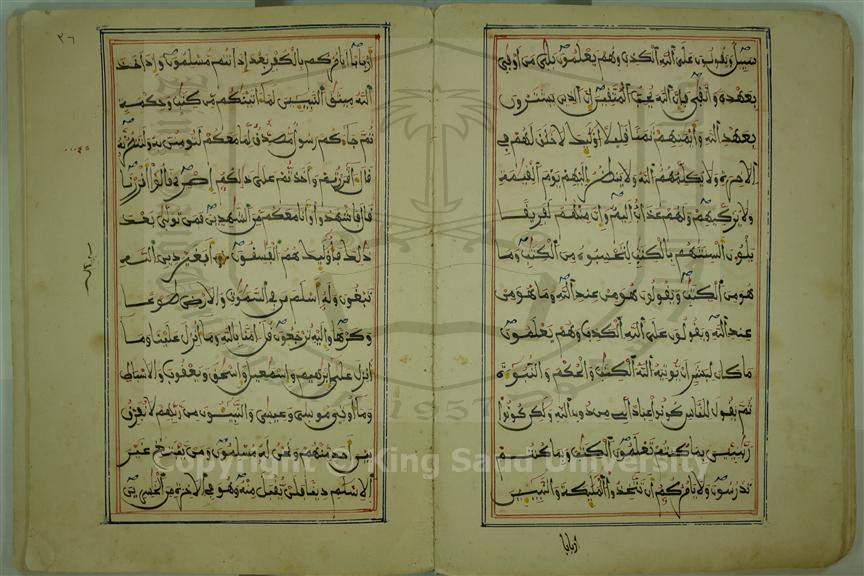 سبيل ويقولون على الله الكذب وهم يعلمون بلى من أوفى
بعهده واتقى فإن الله يحب المتقين إن الذين يشترون
بعهد الله وأيمنهم ثمنا قليلا أوليك لا خلق لهم في
الاخرة ولا يكلمهم الله ولا ينظر إليهم يوم القيمة
ولا يزكيهم ولهم عذاب أليم وإن منهم لفريقا
يلون ألسنتهم بالكتب لتحسبوه من الكتب وما
هو من الكتب ويقولون هو من عند الله وما هو من
عند الله ويقولون على الله الكذب وهم يعلمون
ما كان لبشر أن يوتيه الله الكتب والحكم والنبوءة
ثم يقول للناس كونوا عبادا لي من دون الله ولكن كونوا
ربنين بما كنتم تعلمون الكتب وبما كنتم
تدرسون ولا يامركم أن تتخذوا المليكة والنبيين
اربابا
٣٦
أربابا أيامركم بالكفر بعد إذ أنتم مسلمون وإذ أخذ
الله ميثق النبيين لما اتينكم من كتب وحكمة
ثم جاءكم رسول مصدق لما معكم لتومنن به ولتنصرنه
قال أقررتم وأخذتم على ذلكم إصري قالوا أقررنا
قال فاشهدوا وأنا معكم من الشهدين فمن تولى بعد
ذلك فأوليك هم الفسقون أفغير دين الله
تبغون وله أسلم من في السموت والارض طوعا
وكرها وإليه ترجعون قل امنا بالله وما أنزل علينا وما
أنزل على إبرهيم وإسمعيل وإسحق ويعقوب والاسباط
وما أوتي موسى وعيسى والنبيون من ربهم لا نفرق
بين أحد منهم ونحن له مسلمون ومن يبتغ غير
الاسلم دينا فلن يقبل منه وهو في الاخرة من الخسرين
Copyright © King Saud University
1957